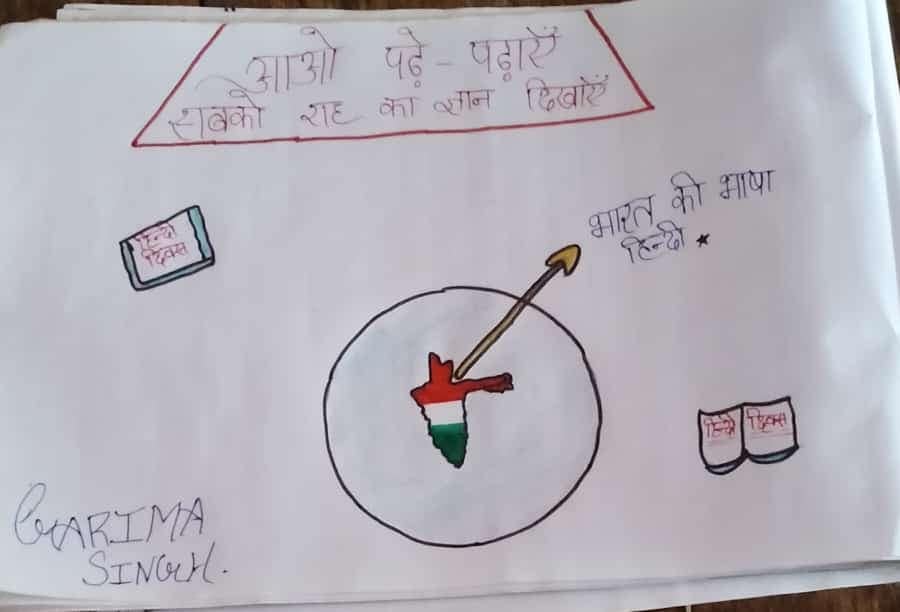 आओ पढ़े - पढ़ाएँ
सबको राह का ज्ञान दिखाएँ
हिन्दी
दिवस
भारत की भाषा
हिन्दी
हिन्दी दिवस
GARIMA
SINGH.